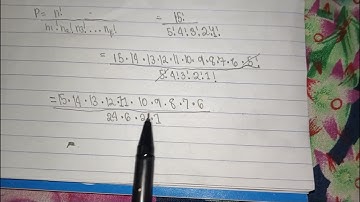 P= n! = 15!
n₁! n₂! n₃! ... nₖ! 5! 4! 3! 2! 1!
= 15·14·13·12·11·10·9·8·7·6·5!
5! 4! 3! 2! 1!
= 15·14·13·12·11·10·9·8·7·6
24·6·2·1
=